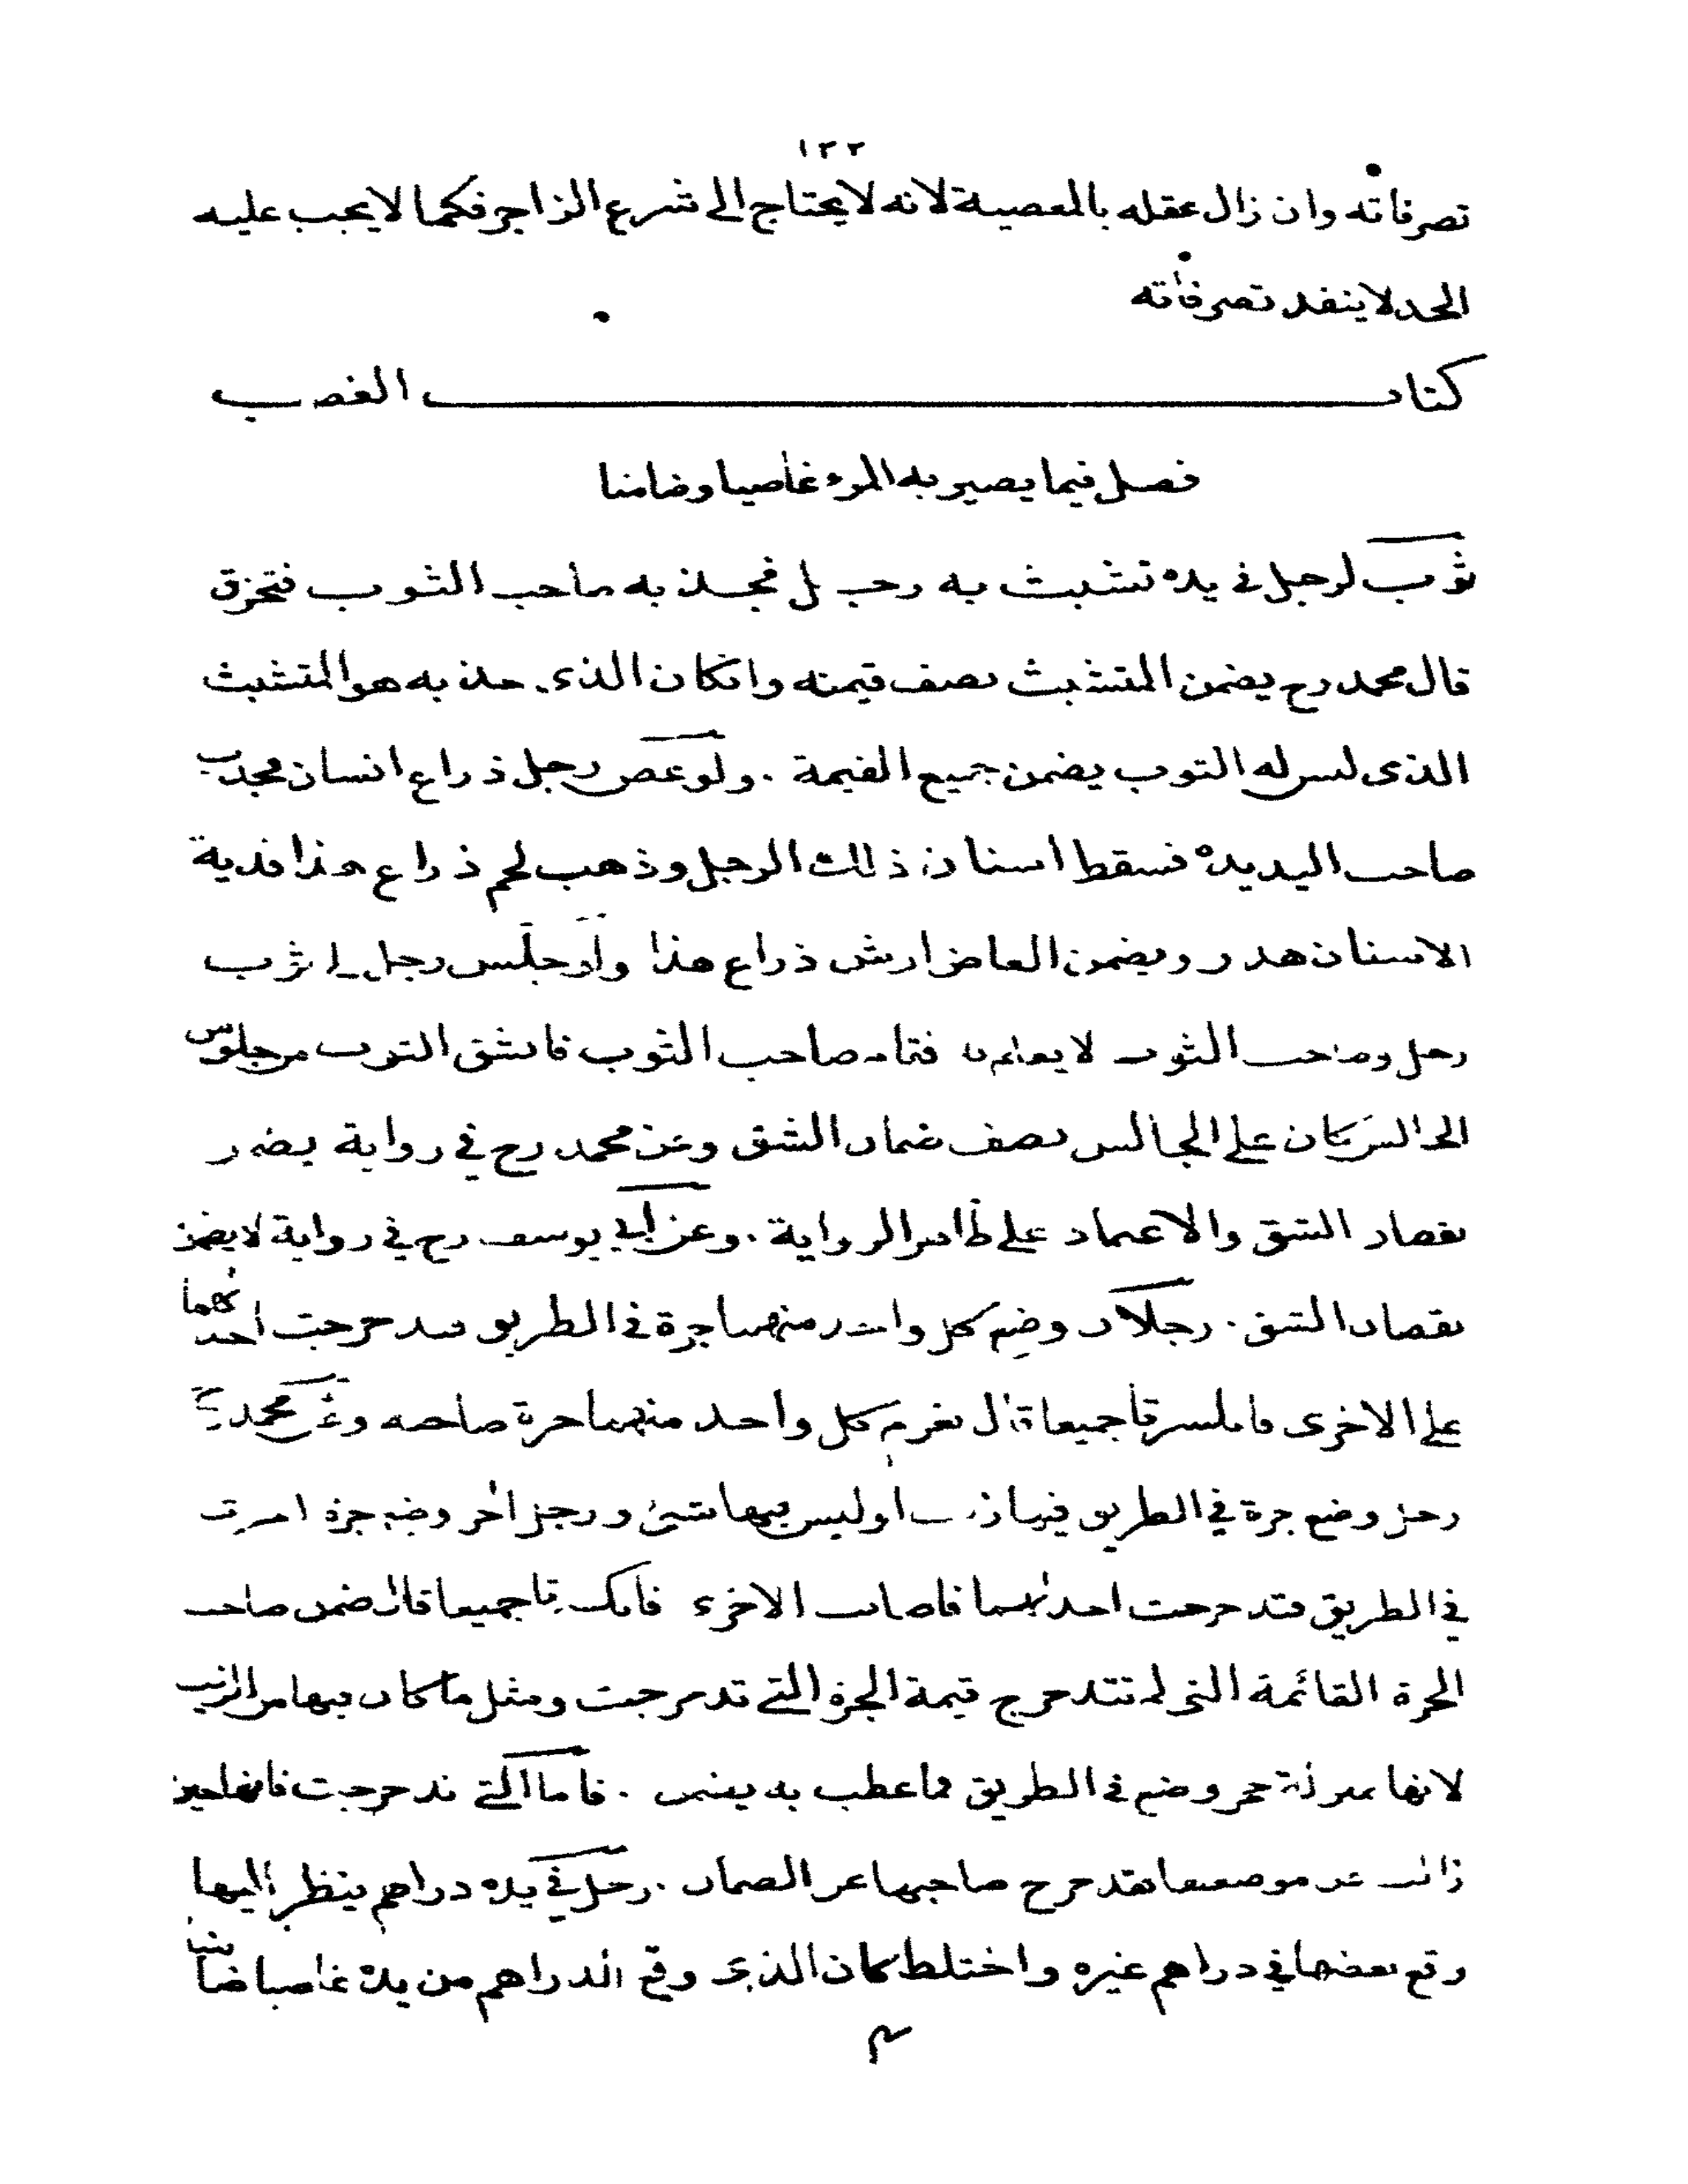 ١٢٢
تصرفاته وان زال عقله بالمعصية لانه لا يحتاج الى شرع الزاجر فكما لا يجب عليه
الحد لا ينفد تصرفاته
كتاب الغصب
فصل فيما يصير به المرء غاصبا وضامنا
ثوب لرجل في يده تشبث به رجل فجذبه صاحب الثوب فتخزق
قال محمد رح يضمن المتشبث نصف قيمته وانكان الذى جذبه هو المتشبث
الذى ليس له الثوب يضمن جميع القيمة . ولو عض رجل ذراع انسان فجذب
صاحب اليد يده فسقط اسنان ذلك الرجل وذهب لحم ذراع هذا فدية
الاسنان هدر ويضمن العاض ارش ذراع هذا ولو جلس رجل على ثوب
رجل وصاحب الثوب لا يعلم به فقام صاحب الثوب فانشق الثوب من جلوس
الجالس كان على الجالس نصف ضمان الشق وعن محمد رح في رواية يضمن
نقصان الشق والاعتماد على ظاهر الرواية . وعن ابي يوسف رح في رواية لا يضمن
نقصان الشق . رجلان وضع كل واحد منهما جرة في الطريق فتدحرجت احدهما
على الاخرى فانكسرتا جميعا قال يغرم كل واحد منهما جرة صاحبه وعن محمد رح
رجل وضع جرة في الطريق فيها زيت او ليس فيها شئ ورجل اخر وضع جرة اخرى
في الطريق فتدحرجت احدهما فاصابت الاخرى فانكسرتا جميعا قال ضمن صاحب
الجرة القائمة التى لم تتدحرج قيمة الجرة التي تدحرجت ومثل ما كان فيها من الزيت
لانها بمنزلة حجر وضع في الطريق فما عطب به يضمن . فاما التي تدحرجت فانها حين
زالت عن موضعها فقد خرج صاحبها عن الضمان . رجل في يده دراهم ينظر اليها
وقع بعضها في دراهم غيره واختلط كان الذى وقع الدراهم من يده غاصبا ضامنا